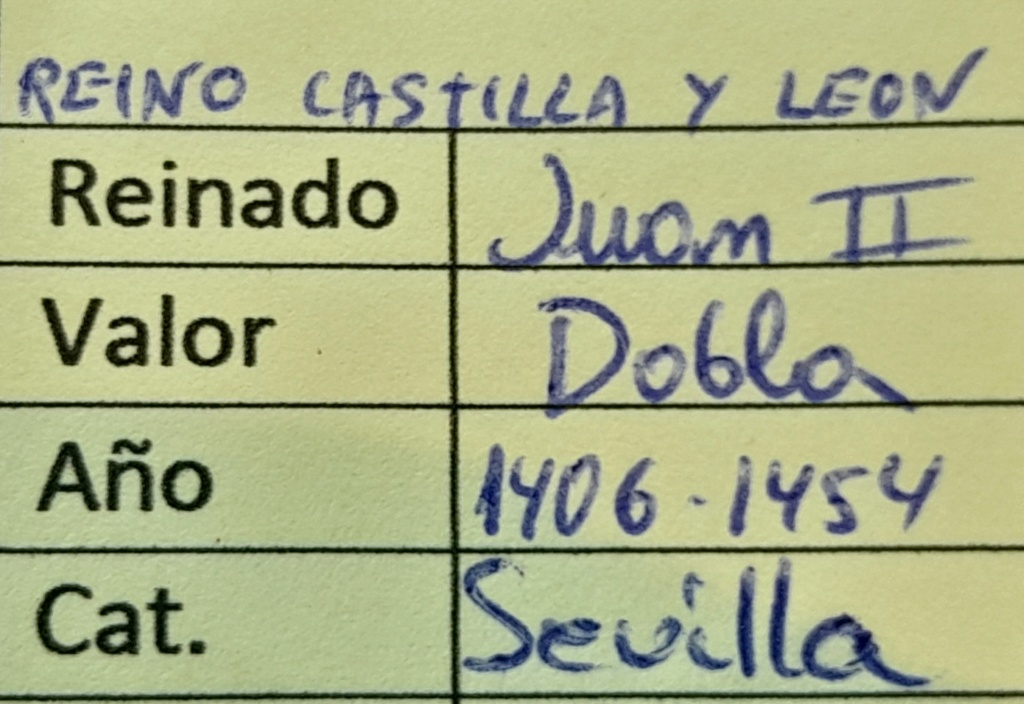 REINO CASTILLA Y LEON
Reinado Juan II
Valor Dobla
Año 1406-1454
Cat. Sevilla